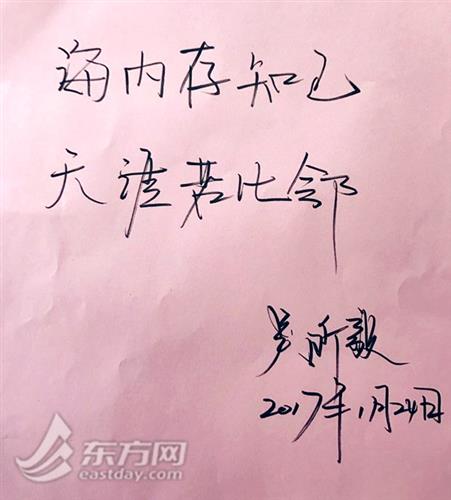 海内存知己
天涯若比邻
2017年1月24日
东方网
eastday.com